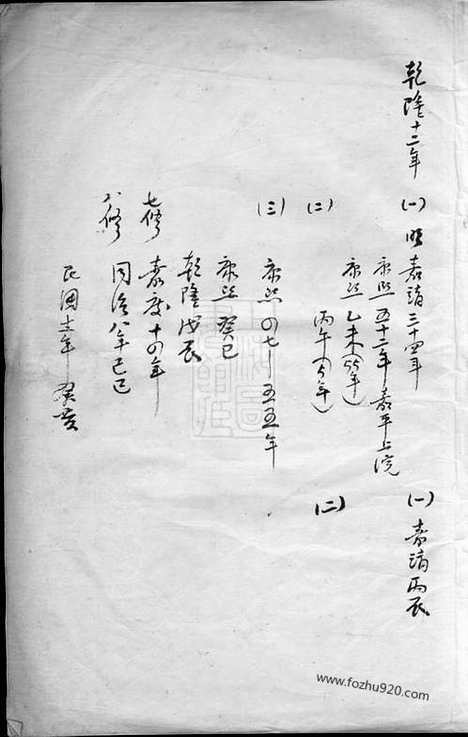 乾隆十二年
(一) 明嘉靖三十四年 (一) 嘉靖丙辰
康熙五十二年嘉平上浣
康熙乙未(55年)
(二) 丙午(5年) (二)
(三) 康熙四七—五五年
康熙癸巳
乾隆戊辰
七修 嘉慶十四年
八修 同治八年己巳
民國十二年癸亥
www.fozhu920.com